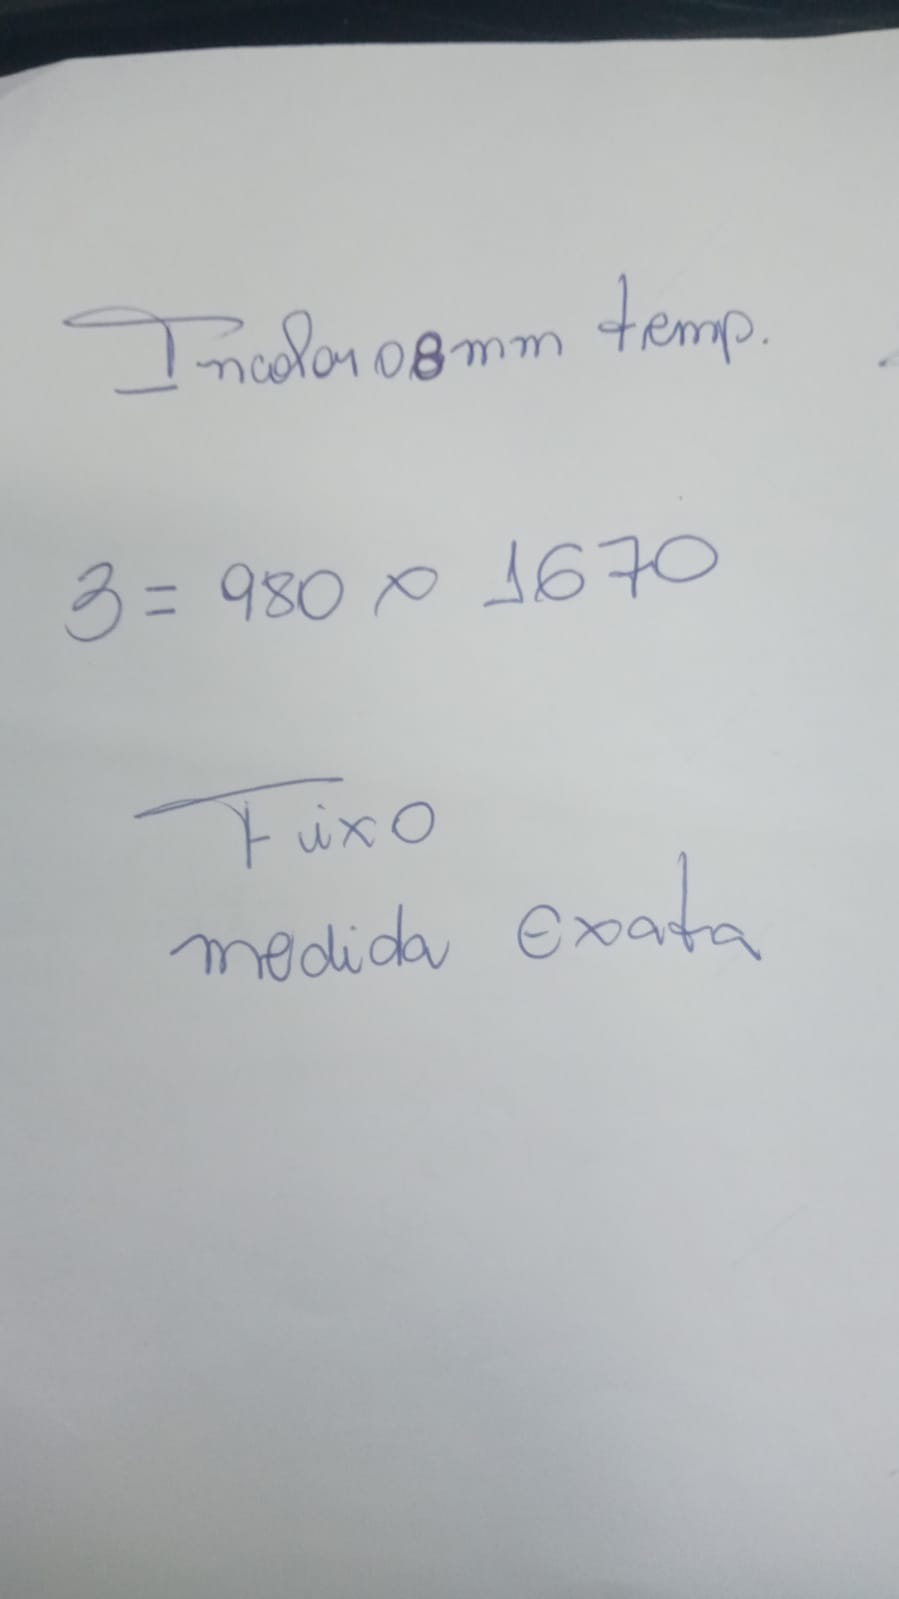 Incolor 08mm temp.
3 = 980 x 1670
Fixo
medida exata